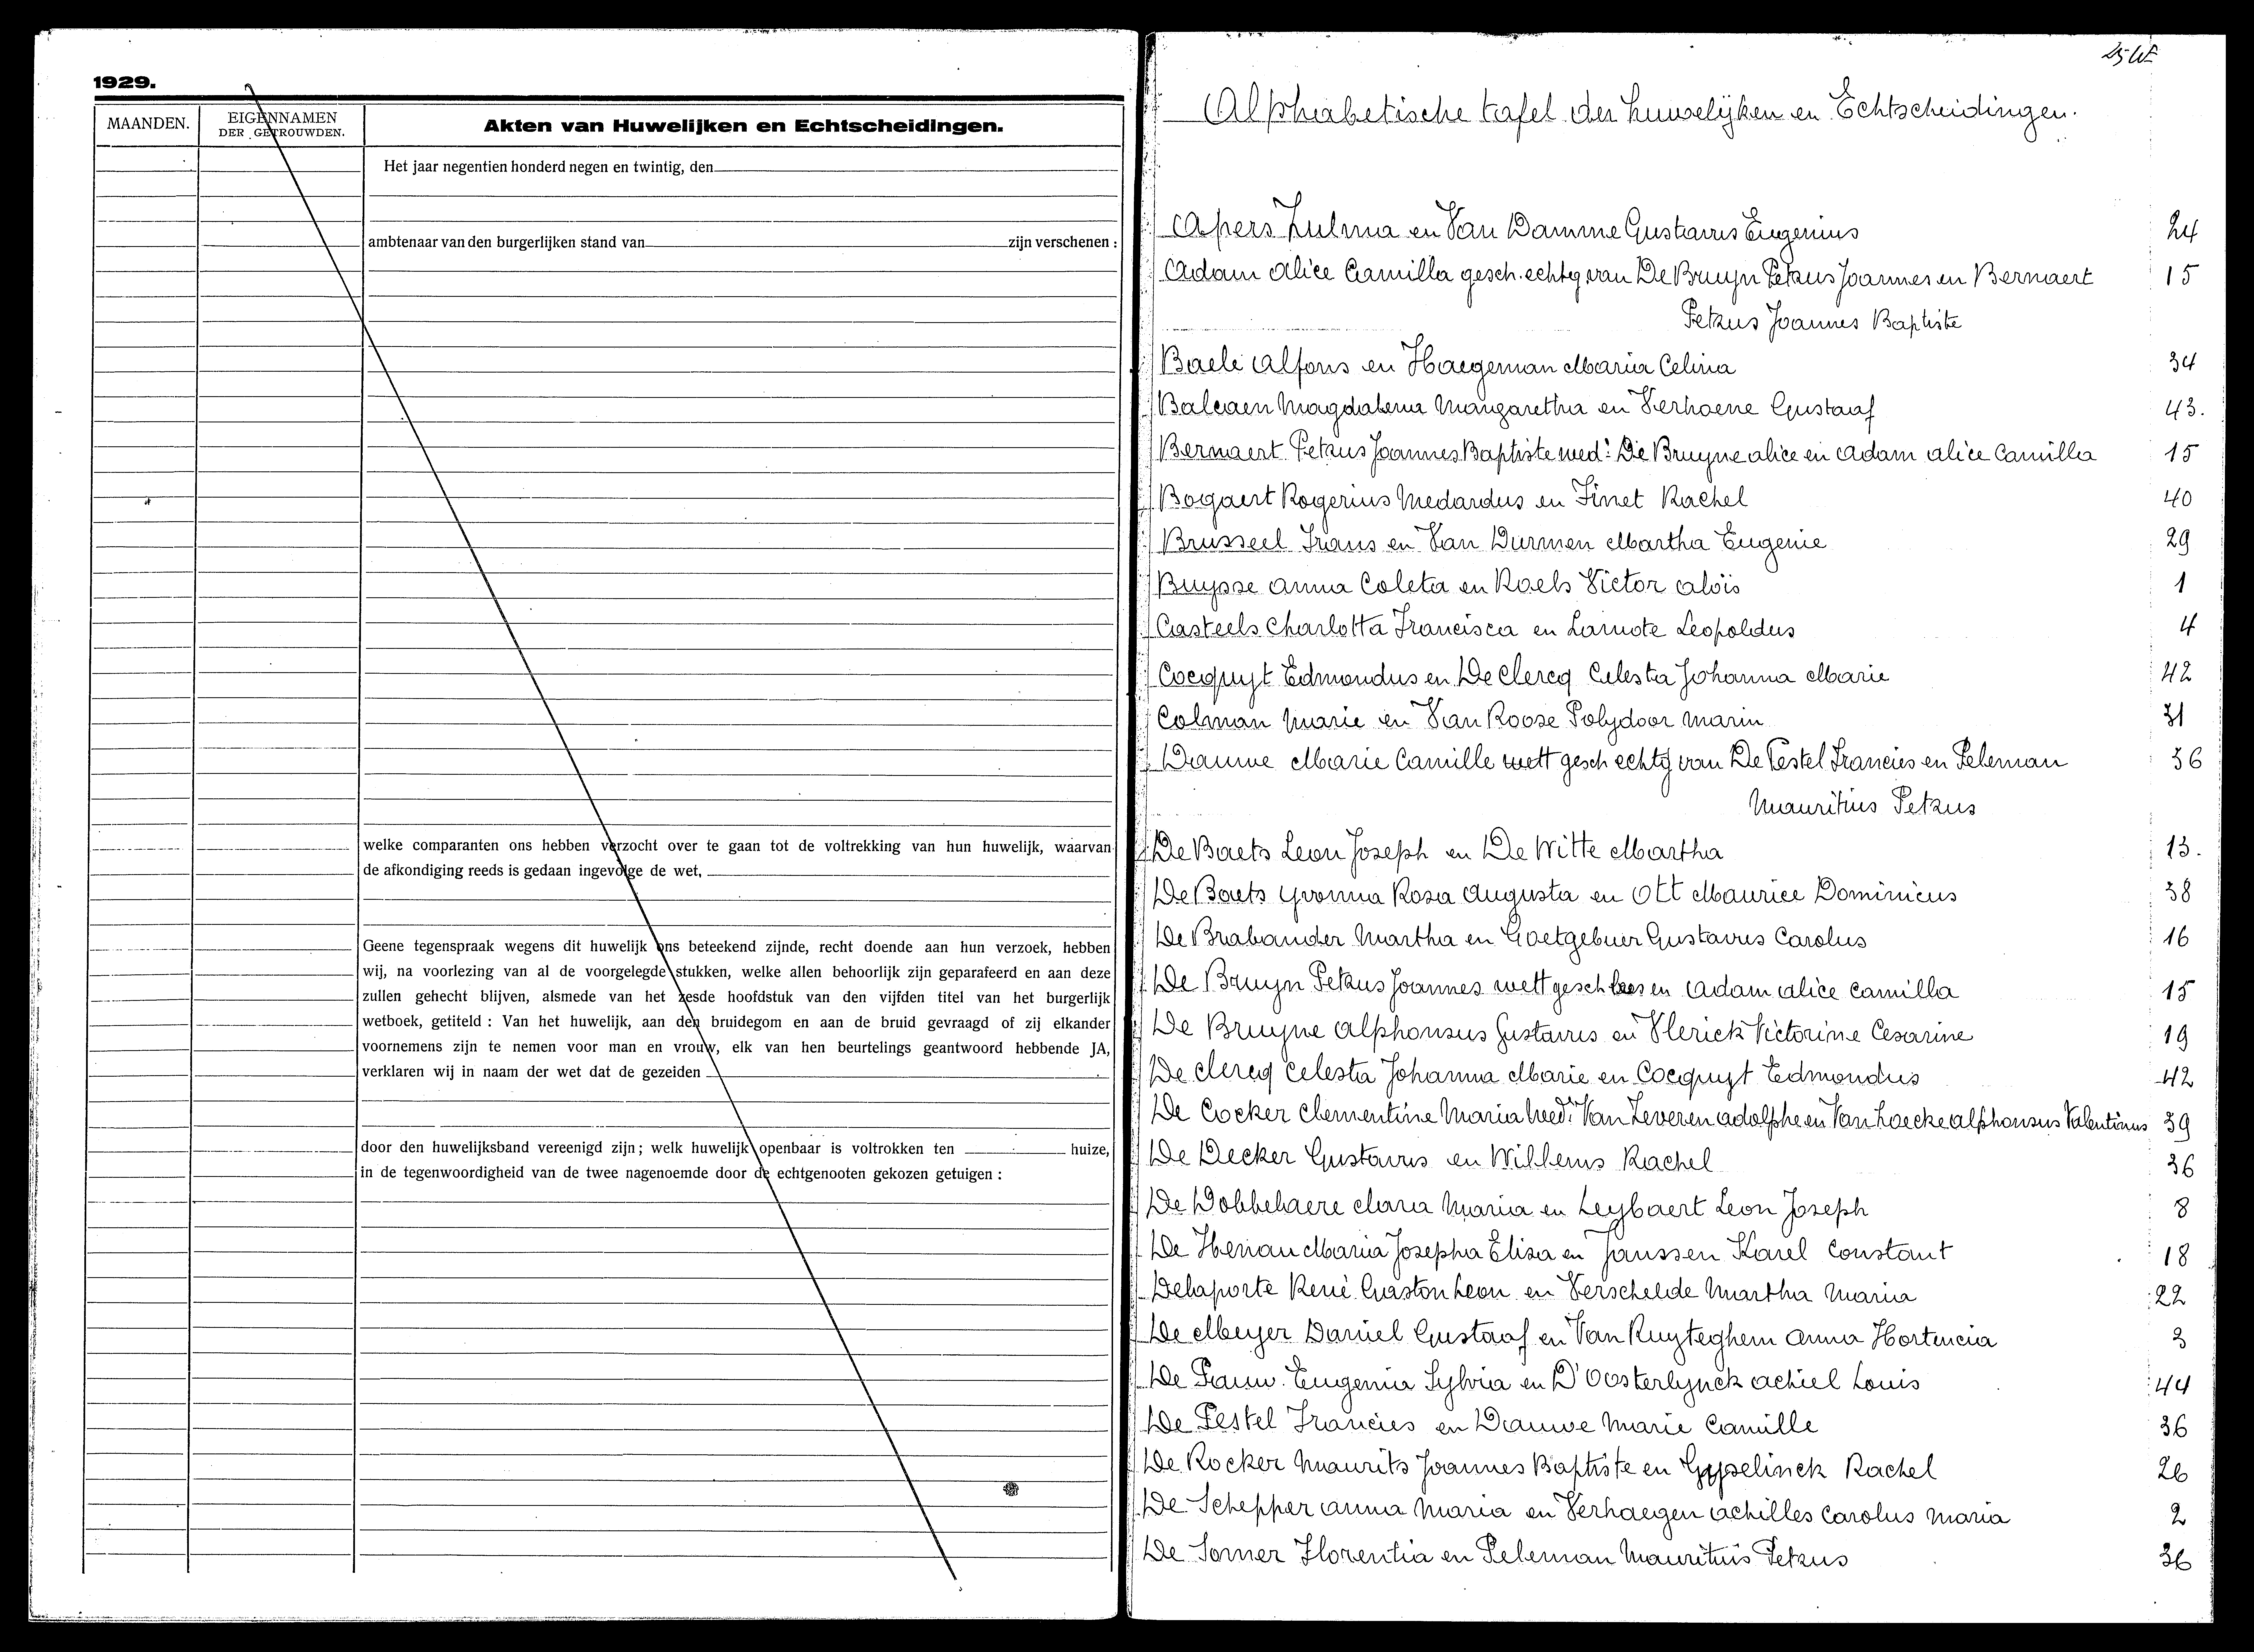 1929.
MAANDEN.
EIGENNAMEN
DER GETROUWDEN.
Akten van Huwelijken en Echtscheidingen.
Het jaar negentien honderd negen en twintig, den
ambtenaar van den burgerlijken stand van zijn verschenen :
welke comparanten ons hebben verzocht over te gaan tot de voltrekking van hun huwelijk, waarvan
de afkondiging reeds is gedaan ingevolge de wet,
Geene tegenspraak wegens dit huwelijk ons beteekend zijnde, recht doende aan hun verzoek, hebben
wij, na voorlezing van al de voorgelegde stukken, welke allen behoorlijk zijn geparafeerd en aan deze
zullen gehecht blijven, alsmede van het zesde hoofdstuk van den vijfden titel van het burgerlijk
wetboek, getiteld : Van het huwelijk, aan den bruidegom en aan de bruid gevraagd of zij elkander
voornemens zijn te nemen voor man en vrouw, elk van hen beurtelings geantwoord hebbende JA,
verklaren wij in naam der wet dat de gezeiden
door den huwelijksband vereenigd zijn ; welk huwelijk openbaar is voltrokken ten huize,
in de tegenwoordigheid van de twee nagenoemde door de echtgenooten gekozen getuigen :
Alphabetische tafel der huwelijken en Echtscheidingen.
Apers Zulma en Van Damme Gustavus Eugenius 24
Adam Alice Camilla gesch. echtg. van De Bruyn Petrus Joannes en Bernaert 15
Petrus Joannes Baptiste
Baele Alfons en Haegeman Maria Celina 34
Balcaen Magdalena Margaretha en Verhoene Gustaaf 43.
Bernaert Petrus Joannes Baptiste wed: De Bruyne Alice en Adam Alice Camilla 15
Bogaert Rogerius Medardus en Finet Rachel 40
Brusseel Frans en Van Durmen Martha Eugenie 29
Buysse Anna Coleta en Roels Victor Aloïs 1
Casteels Charlotta Francisca en Lamote Leopoldus 4
Cocquyt Edmondus en De Clercq Celesta Johanna Marie 42
Colman Marie en Van Roose Polydoor Marin 31
Dauwe Marie Camille wett gesch echtg van De Pestel Francies en Peleman 36
Mauritius Petrus
De Baets Leon Joseph en De Witte Martha 13.
De Baets Yvonna Rosa Augusta en Ott Maurice Dominicus 38
De Brabander Martha en Goetgebuer Gustavus Carolus 16
De Bruyn Petrus Joannes wett gesch en Adam Alice Camilla 15
De Bruyne Alphonsus Gustavus en Vlerick Victorine Cesarine 19
De Clercq Celesta Johanna Marie en Cocquyt Edmondus 42
De Cocker Clementine Maria wed: Van Zeveren Adolphe en Van Laecke Alphonsus Valentinus 39
De Decker Gustavus en Willems Rachel 36
De Dobbelaere Clara Maria en Leybaert Leon Joseph 8
De Heriau Maria Josepha Elisa en Janssen Karel Constant 18
Delaporte René Gaston Leon en Verschelde Martha Maria 22
De Meyer Daniel Gustaaf en Van Ruyteghem Anna Hortencia 3
De Pauw Eugenia Sylvia en D'Oosterlynck Achiel Louis 44
De Pestel Francies en Dauwe Marie Camille 36
De Rocker Maurits Joannes Baptiste en Gyselinck Rachel 26
De Schepper Anna Maria en Verhaegen Achilles Carolus Maria 2
De Somer Florentia en Peleman Mauritius Petrus 36